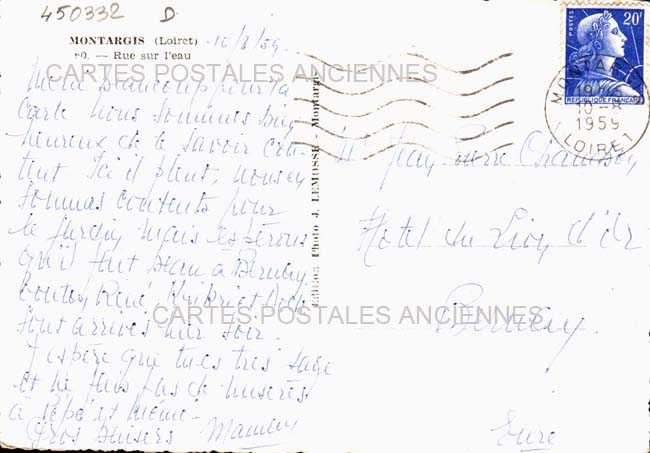 450332 D.
MONTARGIS (Loiret) 10/8/59
90. — Rue sur l'eau
Merci beaucoup pour ta
carte nous sommes bien
heureux de te savoir con-
tent Ici il pleut, nous en
sommes contents pour
le jardin mais espérons
qu'il fait beau à Bernay
tonton René
sont arrivés hier soir.
J'espère que tu es très sage
et ne fais pas de misères
à Pépé et Mémé -
Gros baisers Maman
Edition Photo J. LEMOSSE - Montargis
CARTES POSTALES ANCIENNES
CARTES POSTALES ANCIENNES
POSTES 20F
REPUBLIQUE FRANÇAISE
MONTARGIS
10-8
1959
LOIRET
Jean Pierre
Hotel du Lion d'Or
Bernay
Eure